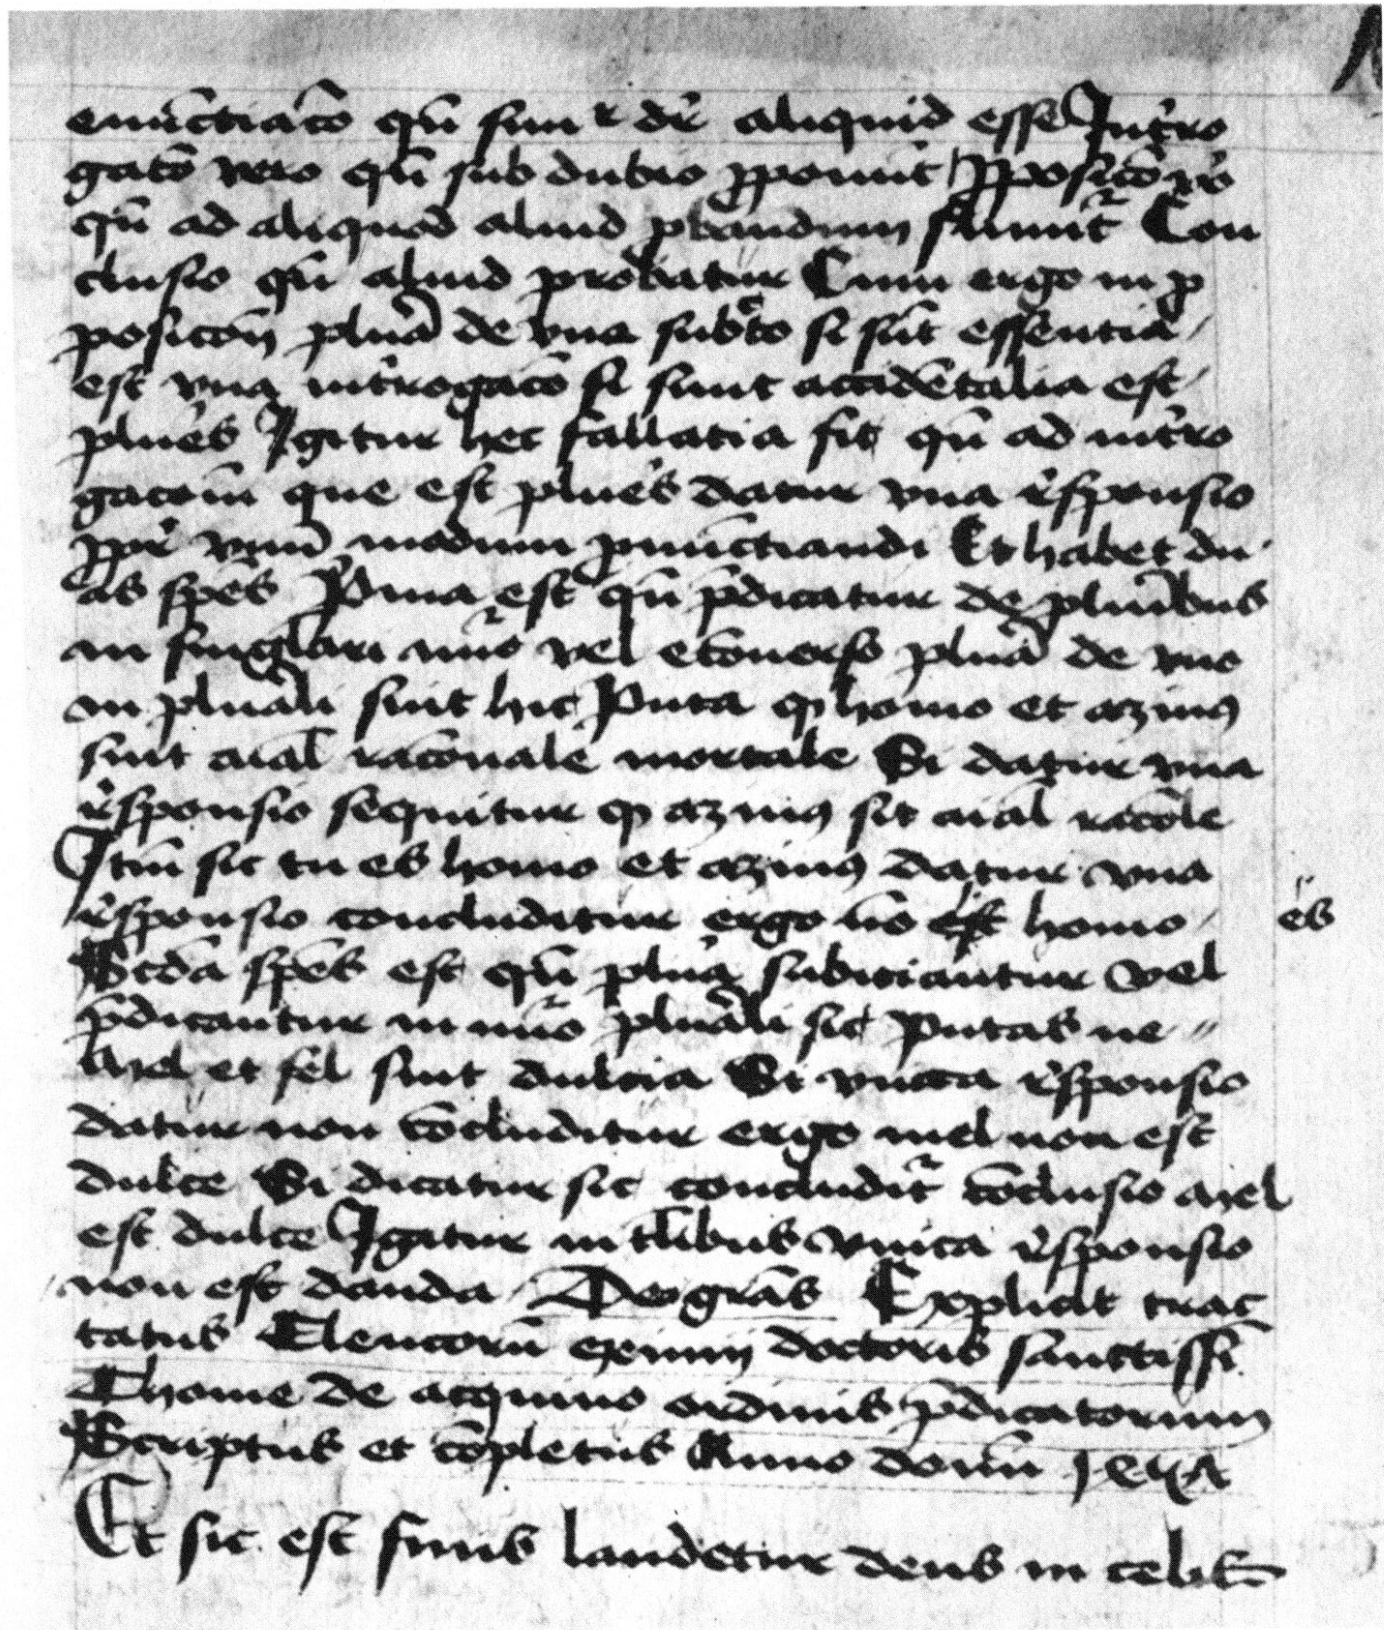 enūctiacō qn̄ simr dr̄ aliquid esse Int̄ro
gatō vero qn̄ sub dubio ꝓponit̄ ꝓposicō vo
qn̄ ad aliquod aliud ꝓbandum sumit̄ Con
clusio qn̄ aliud probatur Cum ergo in ꝓ
posicōn plura de vna subto si sūt essentia
est vna int̄rogacō si sunt accidētalia est
plures Igitur hec fallatia fit qn̄ ad int̄ro
gacōm que est plures datur vna rˀsponsio
ꝓpr vnū modum ꝓnūctiandi Et habet du
as spēs Prima est qn̄ p̄dicatur de pluribus
in singlari nūo vel ecōuerso plura de vno
in plurali sint hic Puta ꝙ homo et azinꝯ
sint aīal racōnale mortale Si datur vna
rˀsponsio sequitur ꝙ azinꝯ sit aīal racōle
Itm̄ sic tu es homo et azinꝯ datur vna
rˀsponsio concluditur ergo nō est homo es
Scd̄a spēs est qn̄ plura subiciantur vel
p̄dicantur in nūo plurali sic Putas ne
Mel et fel sint dulcia Si vnica rˀsponsio
datur non cōcluditur ergo mel non est
dulce Si dicatur sic concludit̄ cōclusio mel
est dulce Igitur in tl̄ibus vnica rˀsponsio
non est danda Deo grās Explicit trac
tatus Elencorū eximij doctoris sanctissī
Thome de acquino ordinis p̄dicatorum
Scriptus et cōpletus Anno domī
Et sic est finis laudetur deus in celis